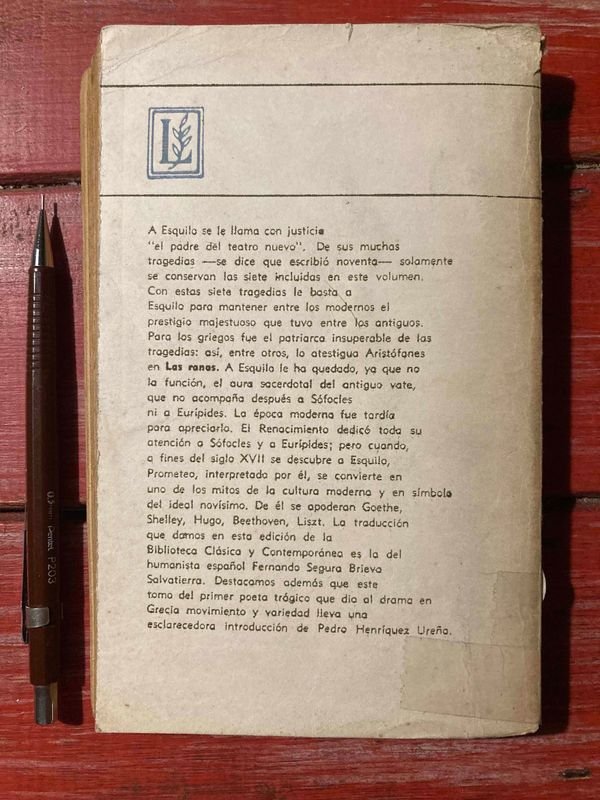 L
A Esquilo se le llama con justicia
"el padre del teatro nuevo". De sus muchas
tragedias —se dice que escribió noventa— solamente
se conservan las siete incluidas en este volumen.
Con estas siete tragedias le basta a
Esquilo para mantener entre los modernos el
prestigio majestuoso que tuvo entre los antiguos.
Para los griegos fue el patriarca insuperable de las
tragedias: así, entre otros, lo atestigua Aristófanes
en Las ranas. A Esquilo le ha quedado, ya que no
la función, el aura sacerdotal del antiguo vate,
que no acompaña después a Sófocles
ni a Eurípides. La época moderna fue tardía
para apreciarlo. El Renacimiento dedicó toda su
atención a Sófocles y a Eurípides; pero cuando,
a fines del siglo XVII se descubre a Esquilo,
Prometeo, interpretado por él, se convierte en
uno de los mitos de la cultura moderna y en símbolo
del ideal novísimo. De él se apoderan Goethe,
Shelley, Hugo, Beethoven, Liszt. La traducción
que damos en esta edición de la
Biblioteca Clásica y Contemporánea es la del
humanista español Fernando Segura Brieva
Salvatierra. Destacamos además que este
tomo del primer poeta trágico que dia al drama en
Grecia movimiento y variedad lleva una
esclarecedora introducción de Pedro Henríquez Ureña.
0.5mm Pentel P203